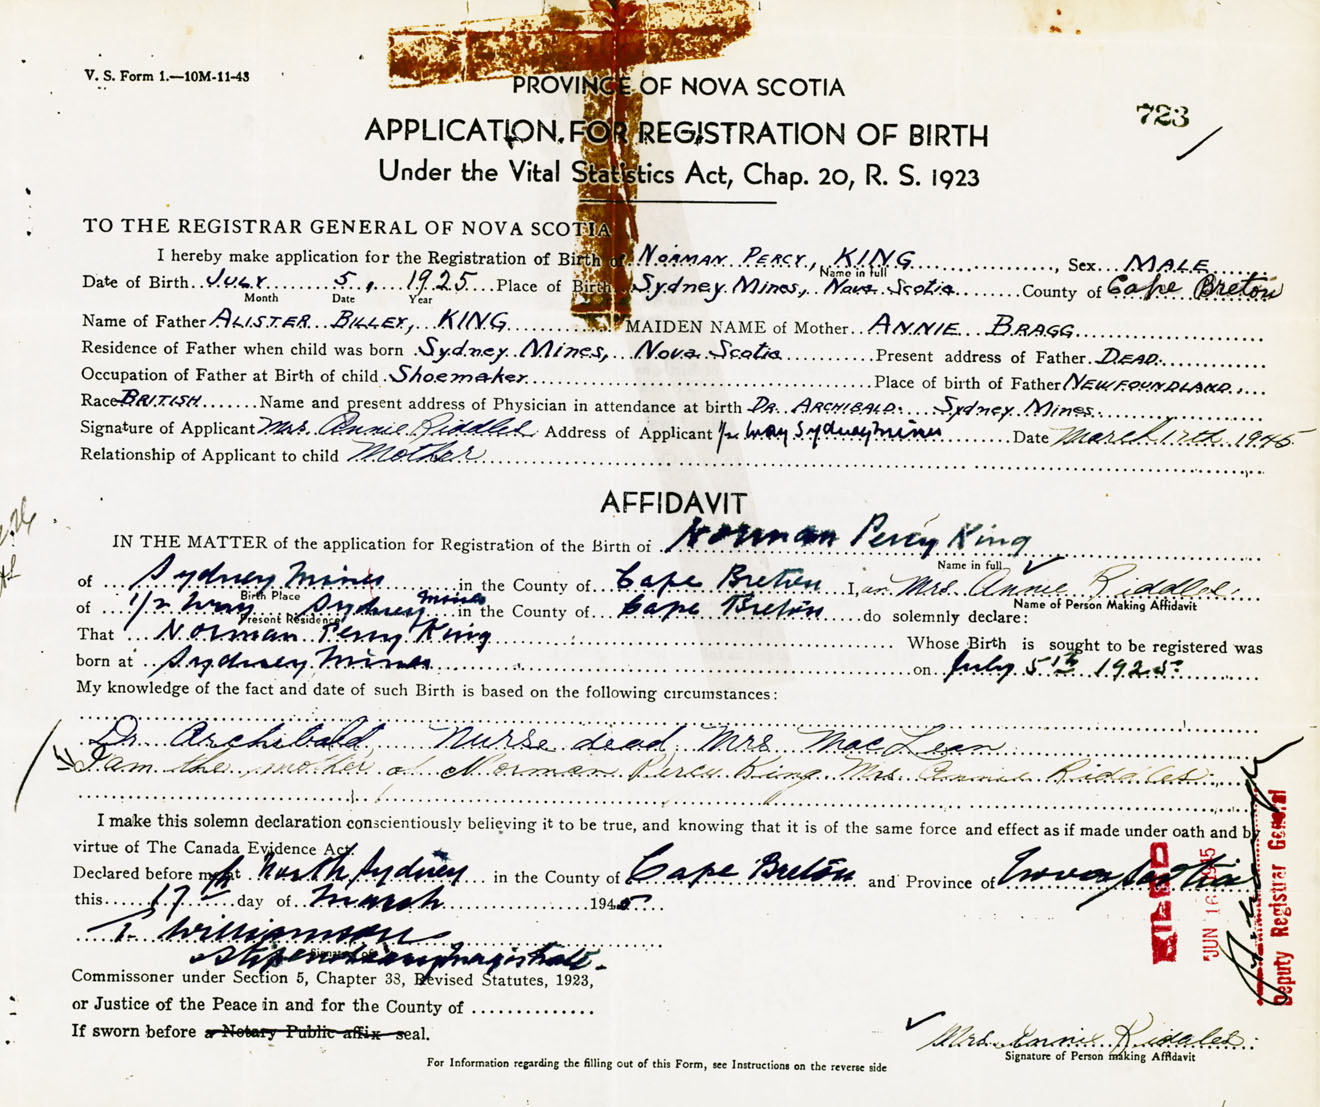 V. S. Form 1.—10M-11-43
PROVINCE OF NOVA SCOTIA
723
APPLICATION FOR REGISTRATION OF BIRTH
Under the Vital Statistics Act, Chap. 20, R. S. 1923
TO THE REGISTRAR GENERAL OF NOVA SCOTIA
I hereby make application for the Registration of Birth of NORMAN PERCY, KING, Sex MALE
Name in full
Date of Birth JULY 5, 1925 Place of Birth Sydney Mines, Nova Scotia County of Cape Breton
Month Date Year
Name of Father ALISTER BILLEY, KING MAIDEN NAME of Mother ANNIE BRAGG
Residence of Father when child was born Sydney Mines, Nova Scotia Present address of Father DEAD.
Occupation of Father at Birth of child Shoemaker Place of birth of Father NEWFOUNDLAND.
Race BRITISH Name and present address of Physician in attendance at birth DR. ARCHIBALD. Sydney Mines.
Signature of Applicant Mrs. Annie Riddles Address of Applicant 1/2 Way Sydney Mines Date March 17th 1945
Relationship of Applicant to child Mother
AFFIDAVIT
IN THE MATTER of the application for Registration of the Birth of Norman Percy King
Name in full
of Sydney Mines in the County of Cape Breton I, Mrs. Annie Riddles.
Birth Place Name of Person Making Affidavit
of 1/2 Way Sydney Mines in the County of Cape Breton do solemnly declare:
Present Residence
That Norman Percy King Whose Birth is sought to be registered was
born at Sydney Mines on July 5th 1925
My knowledge of the fact and date of such Birth is based on the following circumstances:
Dr. Archibald, Nurse dead, Mrs MacLean
I am the mother of Norman Percy King Mrs Annie Riddles
I make this solemn declaration conscientiously believing it to be true, and knowing that it is of the same force and effect as if made under oath and by
virtue of The Canada Evidence Act.
Declared before me at North Sydney in the County of Cape Breton and Province of Nova Scotia
this 17 day of March 1945
Williamson
Stipendiary Magistrate.
Commissoner under Section 5, Chapter 38, Revised Statutes, 1923,
or Justice of the Peace in and for the County of
If sworn before a Notary Public affix seal.
Mrs. Annie Riddles
Signature of Person making Affidavit
For Information regarding the filling out of this Form, see Instructions on the reverse side
FILED
JUN 16 1945
Deputy Registrar General